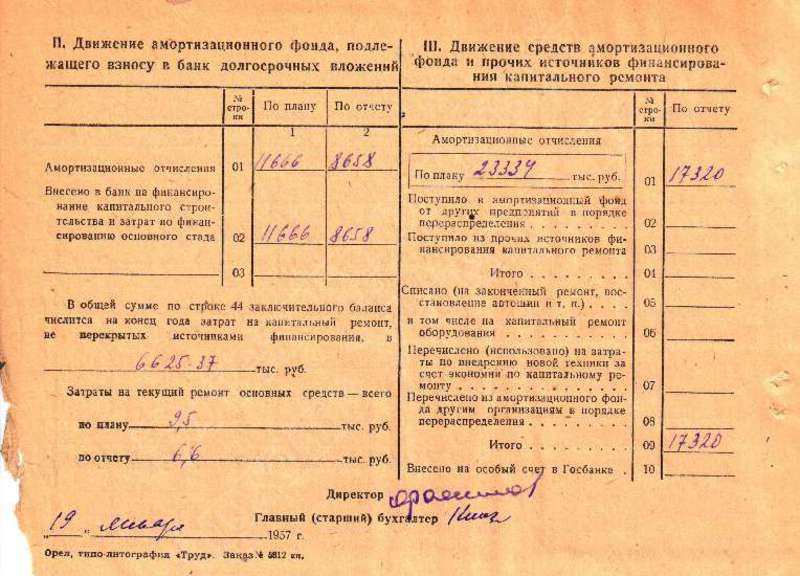 II. Движение амортизационного фонда, подле-
жащего взносу в банк долгосрочных вложений
№ стро-ки По плану По отчету
1 2
Амортизационные отчисления 01 11666 8658
Внесено в банк на финансиро-
вание капитального строи-
тельства и затрат по финан-
сированию основного стада 02 11666 8658
03
В общей сумме по строке 44 заключительного баланса
числится на конец года затрат на капитальный ремонт,
не перекрытых источниками финансирования, в
6625-37 тыс. руб.
Затраты на текущий ремонт основных средств — всего
по плану 9,5 тыс. руб.
по отчету 6,6 тыс. руб.
III. Движение средств амортизационного
фонда и прочих источников финансирова-
ния капитального ремонта
№ стро-ки По отчету
Амортизационные отчисления
По плану 23334 тыс. руб. 01 17320
Поступило в амортизационный фонд
от других предприятий в порядке
перераспределения 02
Поступило из прочих источников фи-
нансирования капитального ремонта 03
Итого 04
Списано (на законченный ремонт, вос-
становление автошин и т. п.) 05
в том числе на капитальный ремонт
оборудования 06
Перечислено (использовано) на затра-
ты по внедрению новой техники за
счет экономии по капитальному ре-
монту 07
Перечислено из амортизационного фон-
да другим организациям в порядке
перераспределения 08
Итого 09 17320
Внесено на особый счет в Госбанке 10
Директор
Главный (старший) бухгалтер
„19„ января 1957 г.
Орел, типо-литография «Труд». Заказ № 5812 кп.